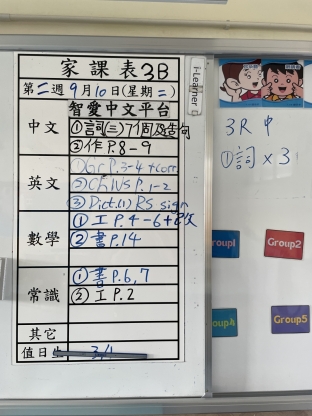 家課表3B
第二週9月10日(星期二)
智愛中文平台
中文
①詞(三)7個及造句
②作P.8-9
英文
①Gr P.3-4 + corr
②Ch1 WS P.1-2
③Dict.(1) RS sign
數學
①工P.4-6+改
②書P.14
常識
①書P.6,7
②工P.2
其它
值日生
i-Learner
3R 中
①詞×3
Group2
Group5